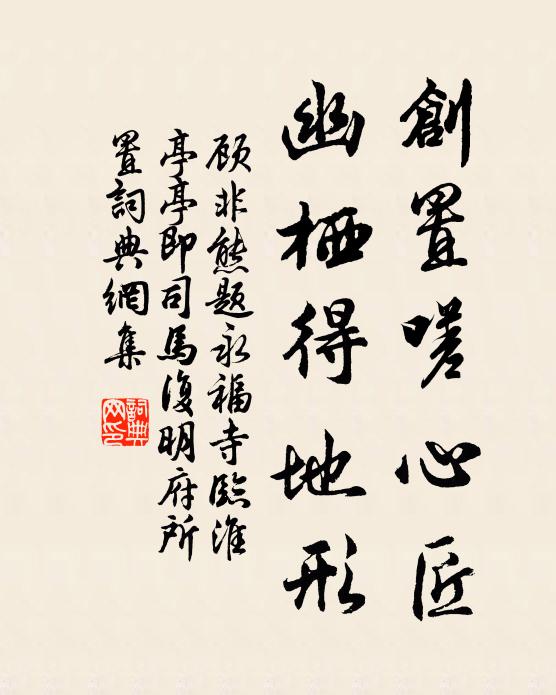 創置嗟心匠
幽栖得地形
顾非熊题永福寺臨淮
亭亭即司馬復明府所
置詞典網集
詞典网印